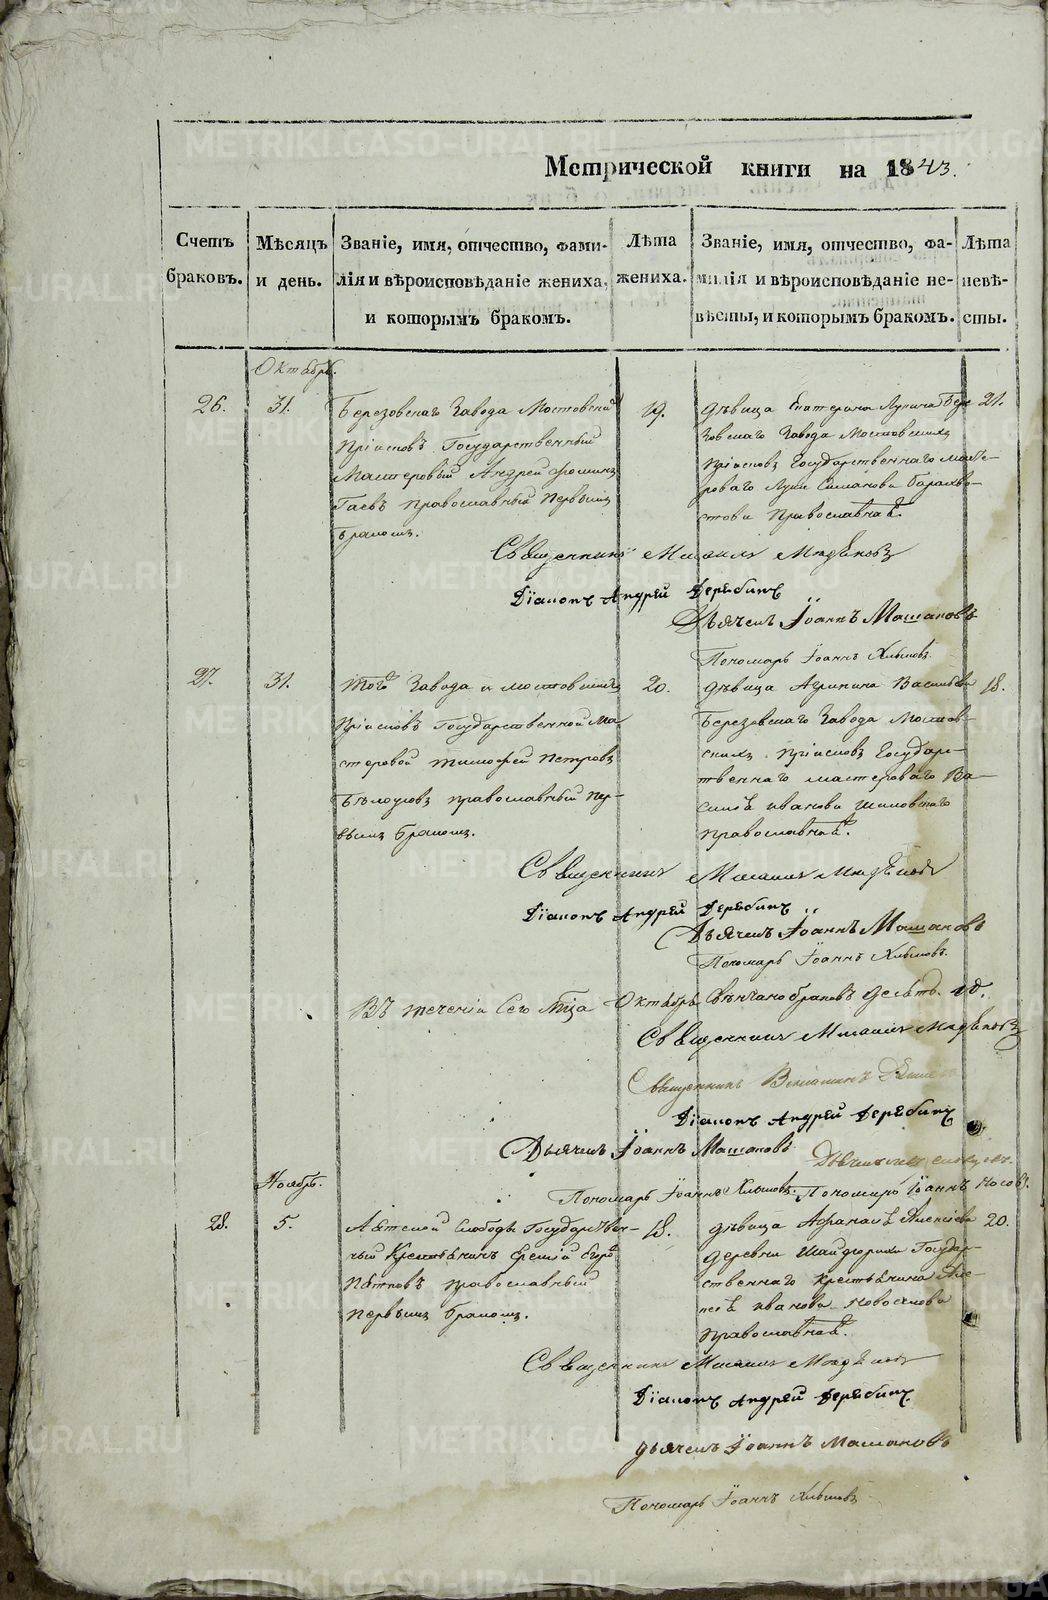 Метрической книги на 1843.
Счетъ браковъ.
Мѣсяцъ и день.
Званіе, имя, отчество, фами-
лія и вѣроисповѣданіе жениха,
и которымъ бракомъ.
Лѣта
жениха.
Званіе, имя, отчество, фа-
милія и вѣроисповѣданіе не-
вѣсты, и которымъ бракомъ.
Лѣта
невѣ-
сты.
Октябрь.
26.
31.
Березовскаго Завода Мостовскихъ
Пріисковъ Государственный
Мастеровый Андрей Фоминъ
Гаевъ православный первымъ
бракомъ.
19.
Дѣвица Екатерина Лукина Бере
зовскаго Завода Мостовскихъ
пріисковъ Государственнаго масте-
роваго Луки Симанова
Православная.
21.
Священникъ Михаилъ
Діаконъ Андрей Дерябинъ
Дьячекъ Іоаннъ Машановъ
Пономарь Іоаннъ Хлыновъ
27.
31.
Тогоже Завода и Мостовскихъ
Пріисковъ Государственной Ма
стеровой Тимофей Петровъ
Бѣлоусовъ православный пер-
вымъ бракомъ.
20.
Дѣвица Агрипина Васильева
Березовскаго Завода Мостов-
скихъ пріисковъ Государ-
ственнаго мастероваго Ва-
силья Иванова
православная.
18.
Священникъ Михаилъ
Діаконъ Андрей Дерябинъ
Дьячекъ Іоаннъ Машановъ
Пономарь Іоаннъ Хлыновъ.
Въ теченіи сего Мца Октября Вѣнчано браковъ десять. 10.
Священникъ Михаилъ
Священникъ
Діаконъ Андрей Дерябинъ
Дьячекъ Іоаннъ Машановъ
Пономарь Іоаннъ Хлыновъ. Пономарь Іоаннъ Носовъ.
Ноябрь.
28.
5.
Аятской Слободы Государствен-
ный Крестьянинъ
православный
первымъ бракомъ.
18.
Дѣвица Афанасья Алексѣева
деревни Шайдурихи Государ-
ственнаго Крестьянина Але-
ксѣя Иванова Новоселова
православная.
20.
Священникъ Михаилъ
Діаконъ Андрей Дерябинъ
Дьячекъ Іоаннъ Машановъ
Пономарь Іоаннъ Хлыновъ